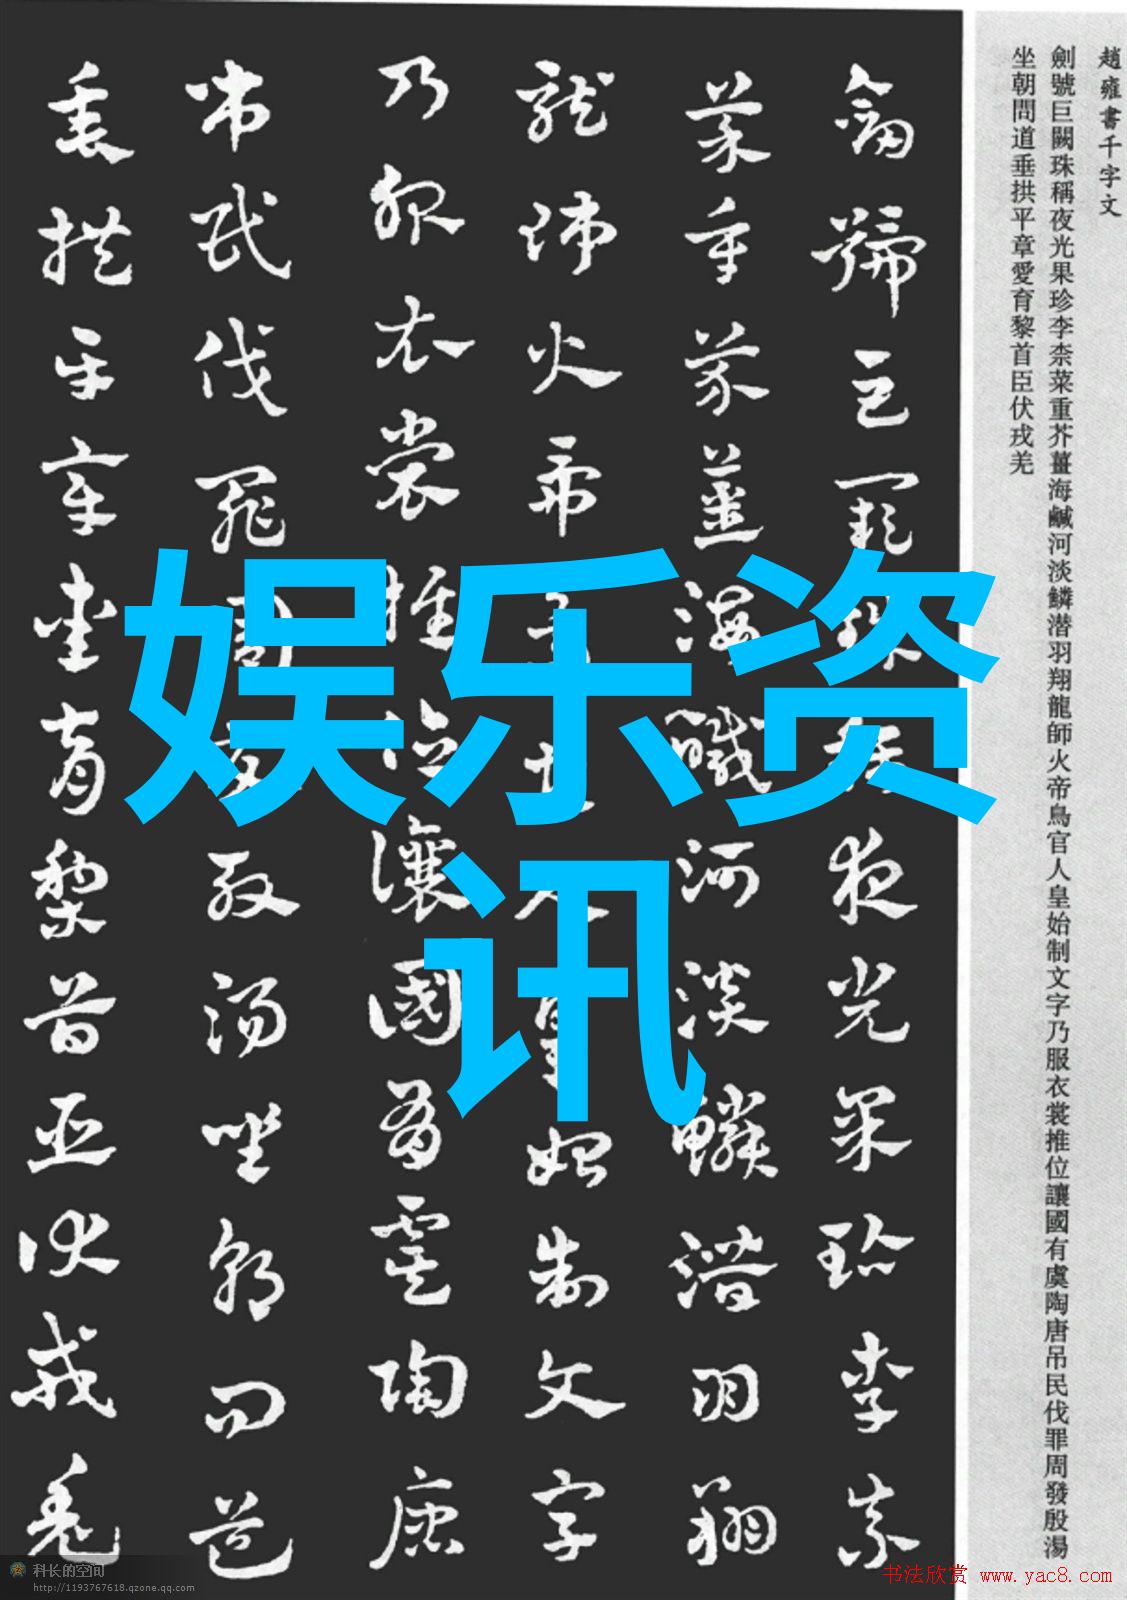 趙雍書千字文
劍號巨闕珠稱夜光果珍李柰菜重芥薑海鹹河淡鱗潜羽翔龍師火帝鳥官人皇始制文字乃服衣裳推位讓國有虞陶唐吊民伐罪周發殷湯
坐朝問道垂拱平章愛育黎首臣伏戎羌
劍號巨闕珠稱夜光果珍李柰
菜重芥薑海鹹河淡鱗潜羽翔
龍師火帝鳥官人皇始制文字
乃服衣裳推位讓國有虞陶唐
吊民伐罪周發殷湯坐朝問道
垂拱平章愛育黎首臣伏戎羌
娱乐资
讯
科长的空间
http://1193767618.qzone.qq.com
书法欣赏 www.yac8.com